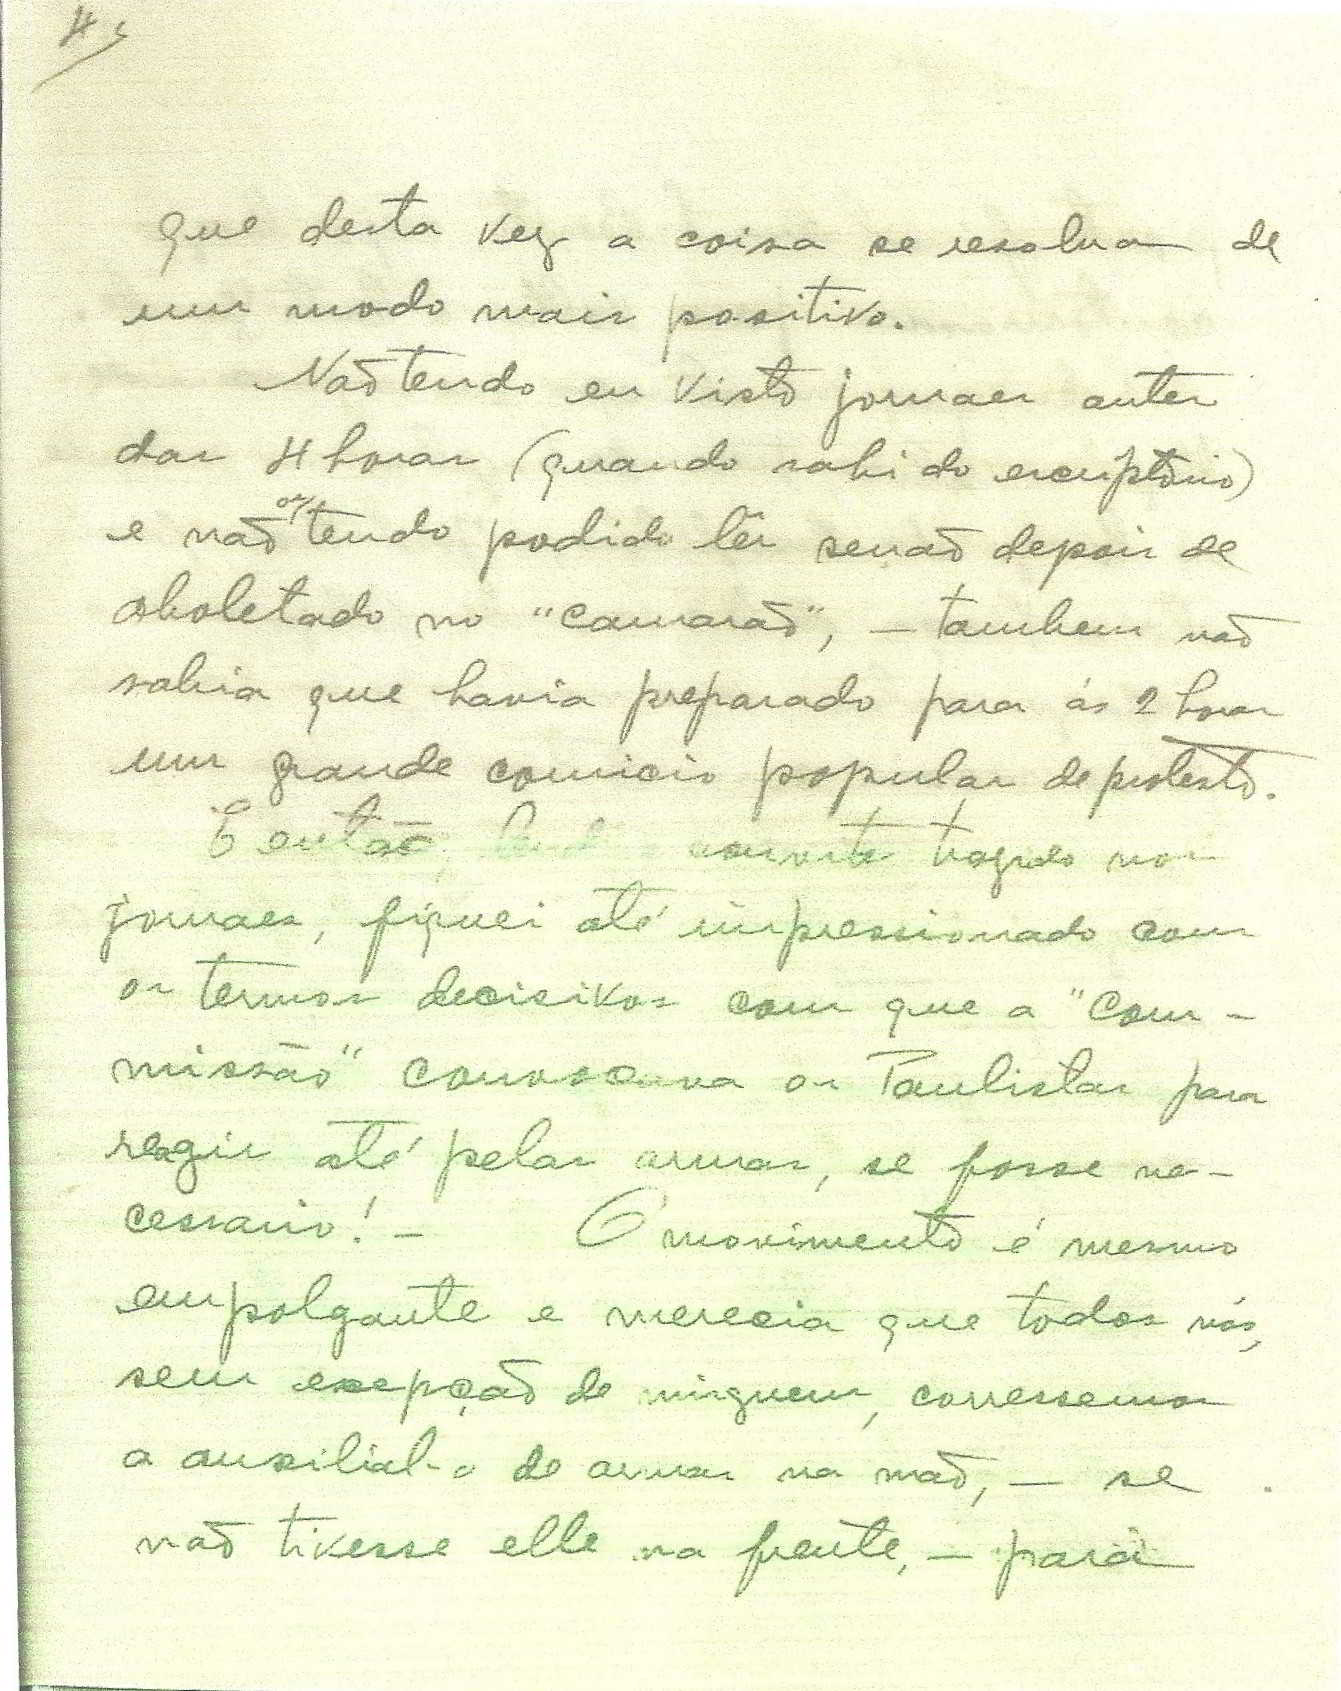 4,
que desta vez a coisa se resolva de
um modo mais positivo.
Não tendo eu visto jornaes antes
das 4 horas (quando sahi do escriptorio)
e não os tendo podido lêr senão depois de
aboletado no "Camarão", — tambem não
sabia que havia preparado para ás 2 horas
um grande comicio popular de protesto.
E então, convite tragado nos
jornaes, fiquei até impressionado com
os termos decisivos com que a "Com-
missão" convocava os Paulistas para
reagir até pelas armas, se fosse ne-
cessario! — O movimento é mesmo
empolgante e merecia que todos nós,
sem excepção de ninguem, corressemos
a auxilial-o de armas na mão, — se
não tivesse elle na frente, — para